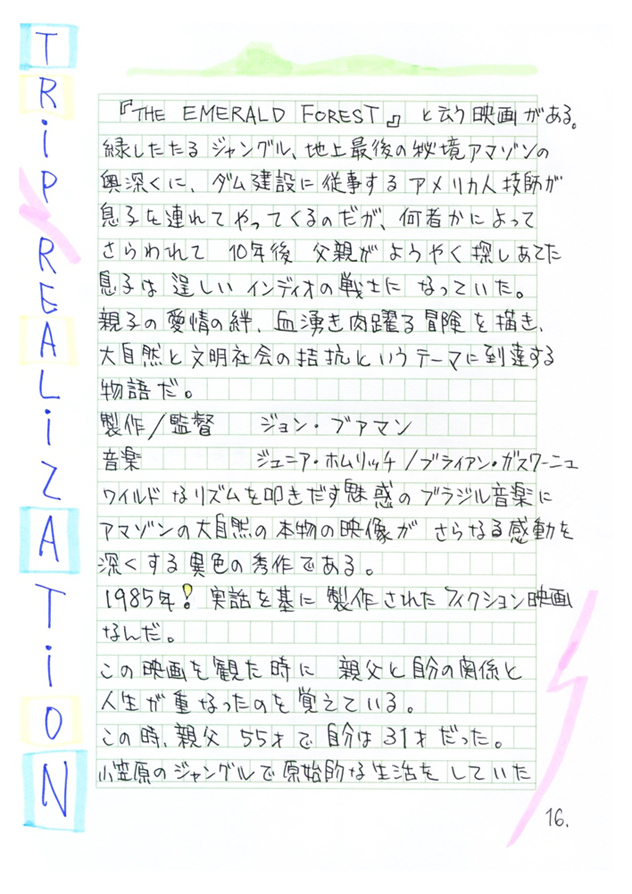 TRiP REALiZATiON
『THE EMERALD FOREST』 と云う映画がある。
緑したたるジャングル、地上最後の秘境アマゾンの
奥深くに、ダム建設に従事するアメリカ人技師が
息子を連れてやってくるのだが、何者かによって
さらわれて 10年後 父親がようやく探しあてた
息子は逞しいインディオの戦士になっていた。
親子の愛情の絆、血湧き肉躍る冒険を描き、
大自然と文明社会の拮抗というテーマに到達する
物語だ。
製作/監督 ジョン・ブアマン
音楽 ジュニア・ホムリッチ/ブライアン・ガスワーニュ
ワイルドなリズムを叩きだす魅惑のブラジル音楽に
アマゾンの大自然の本物の映像がさらなる感動を
深くする異色の秀作である。
1985年! 実話を基に製作されたフィクション映画
なんだ。
この映画を観た時に 親父と自分の関係と
人生が重なったのを覚えている。
この時、親父 55才で自分は31才だった。
小笠原のジャングルで原始的な生活をしていた
16.